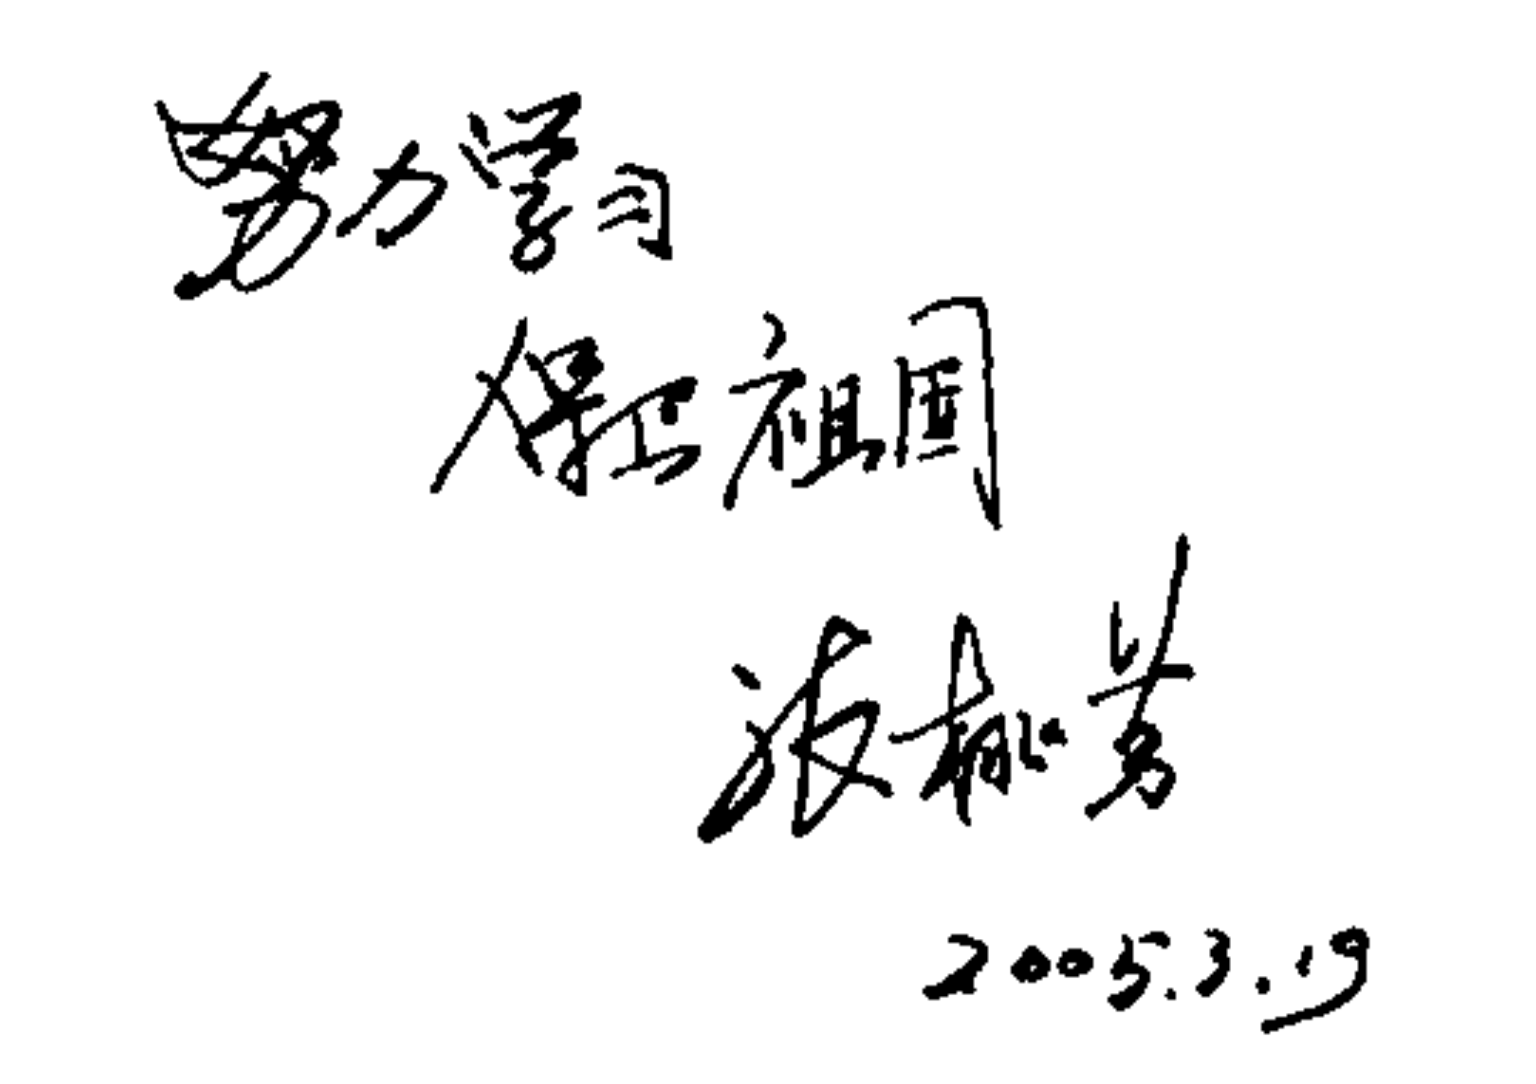 努力学习
保卫祖国
2005.3.19